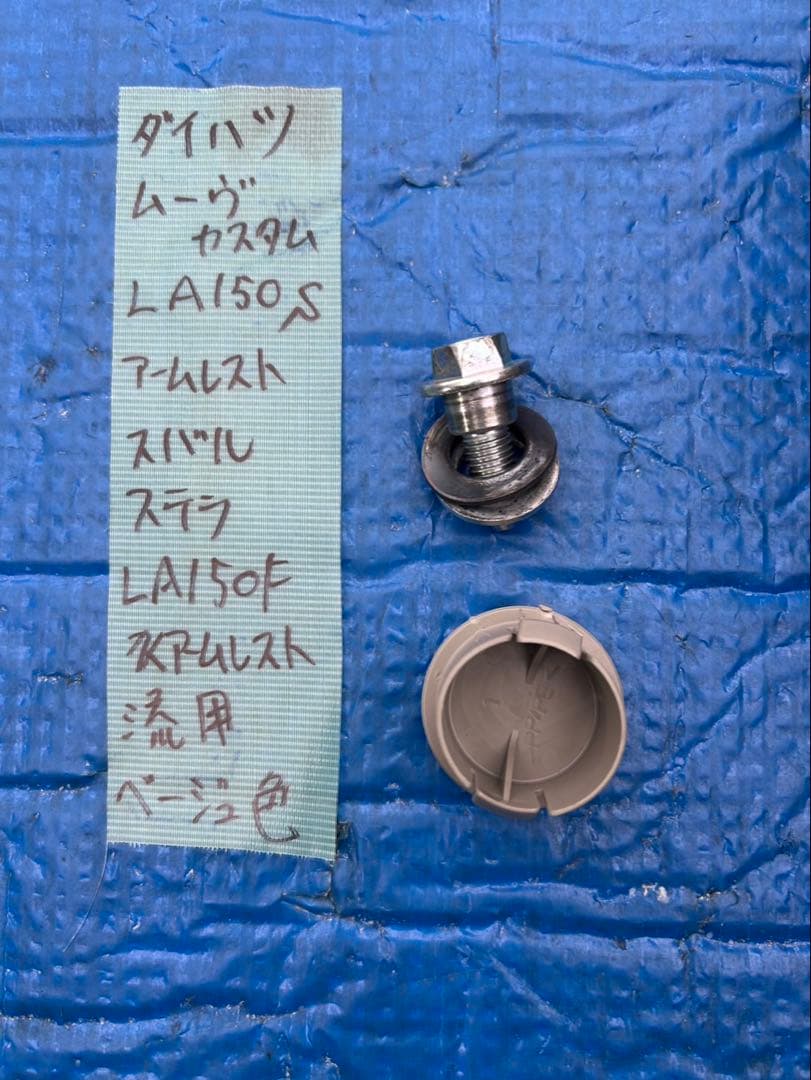 ダイハツ
ムーヴ
カスタム
LA150S
アームレスト
スバル
ステラ
LA150F
アームレスト
流用
ベージュ色
>PP/PE<